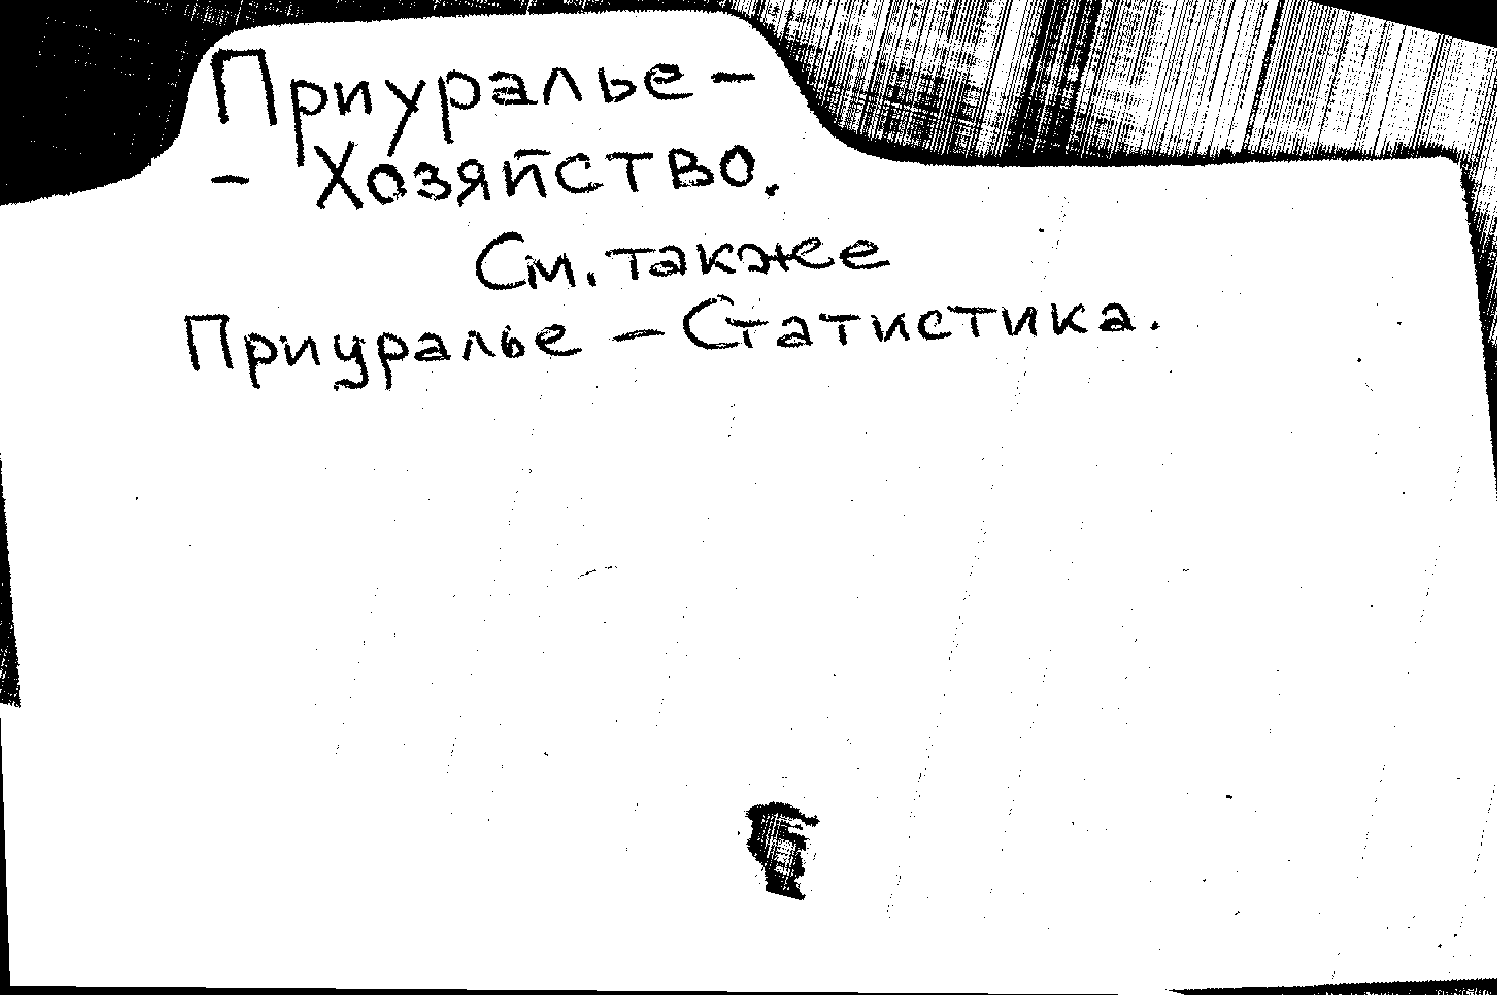 Приуралье -
- Хозяйство.
См. также
Приуралье - Статистика.